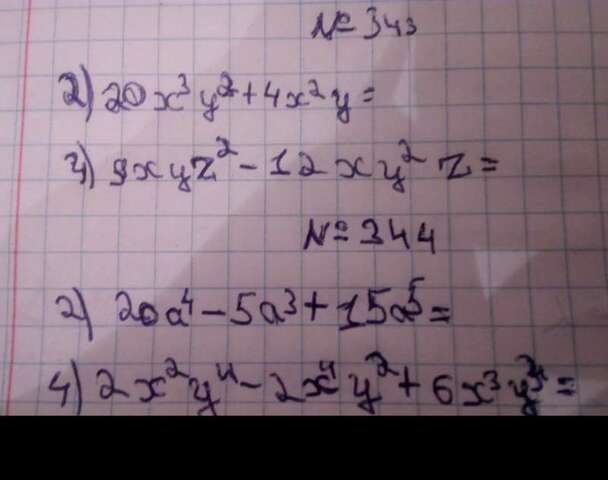 № 343
2) 20x³y²+4x²y=
4) 9xyz²-12xy²z=
№ 344
2) 20a⁴-5a³+15a⁵=
4) 2x²y⁴-2x⁴y²+6x³y³=